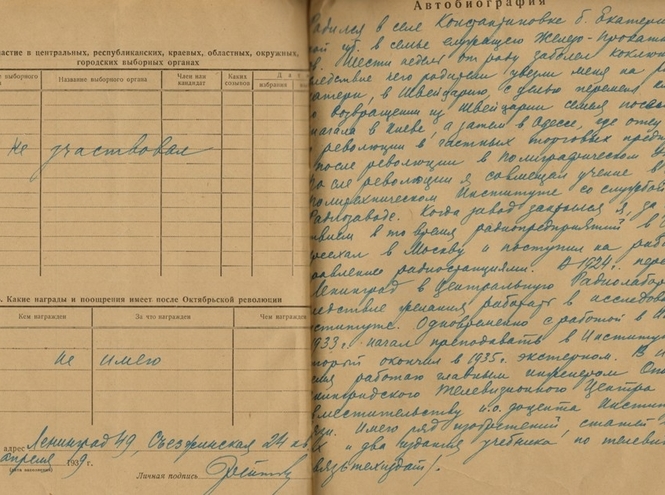 астие в центральных, республиканских, краевых, областных, окружных,
городских выборных органах
выборного
Название выборного органа
Член или кандидат
Каких созывов
избрания
Не участвовал
Какие награды и поощрения имеет после Октябрьской революции
Кем награжден
За что награжден
Чем награжден
не имею
адрес Ленинград 49, Съезжинская 24 кв
апреля 1939 г.
Личная подпись
Автобиография
Родился в селе Константиновке б. Екатерин
ской губ. в семье служащего Железо-прокатн
Шести недель от роду заболел коклюш
вследствие чего родители увезли меня на ро
матери, в Швейцарию, с целью перемен
возвращении из Швейцарии семья посел
начала в Киеве, а затем в Одессе, где отец
революции в частных торговых предпр
после революции в полиграфическом
После революции я совмещал учение в
политехническом Институте со службой
Радиозаводе. Когда завод закрылся я, за
ствием в то время радиопредприятий в О
переехал в Москву и поступил на работ
управлению радиостанциями. В 1924 г. пере
Ленинград в Центральную Радиолабор
вследствие желания работать в исследов
институте. Одновременно с работой в И
1933 г. начал преподавать в Институт
который окончил в 1935 г. экстерном. В н
работаю главным инженером Оп
Ленинградского Телевизионного Центра
совместительству и.о. доцента Инстит
Имею ряд изобретений, статей
и два издания учебника по телеви
Связьтехиздат).